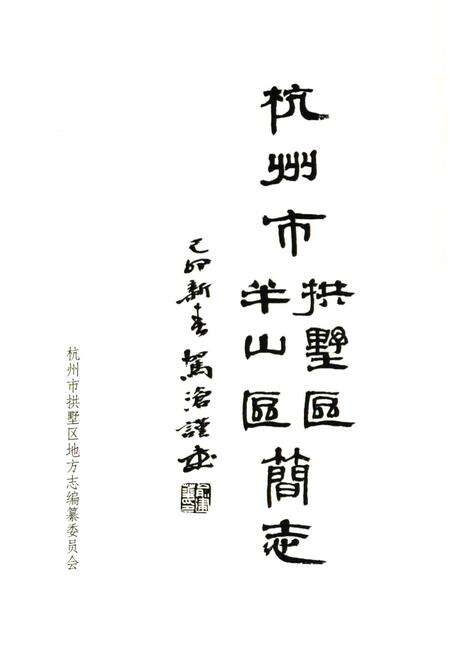 杭州市
拱墅區
半山區
簡志
己卯新春 滄謹
杭州市拱墅区地方志编纂委员会